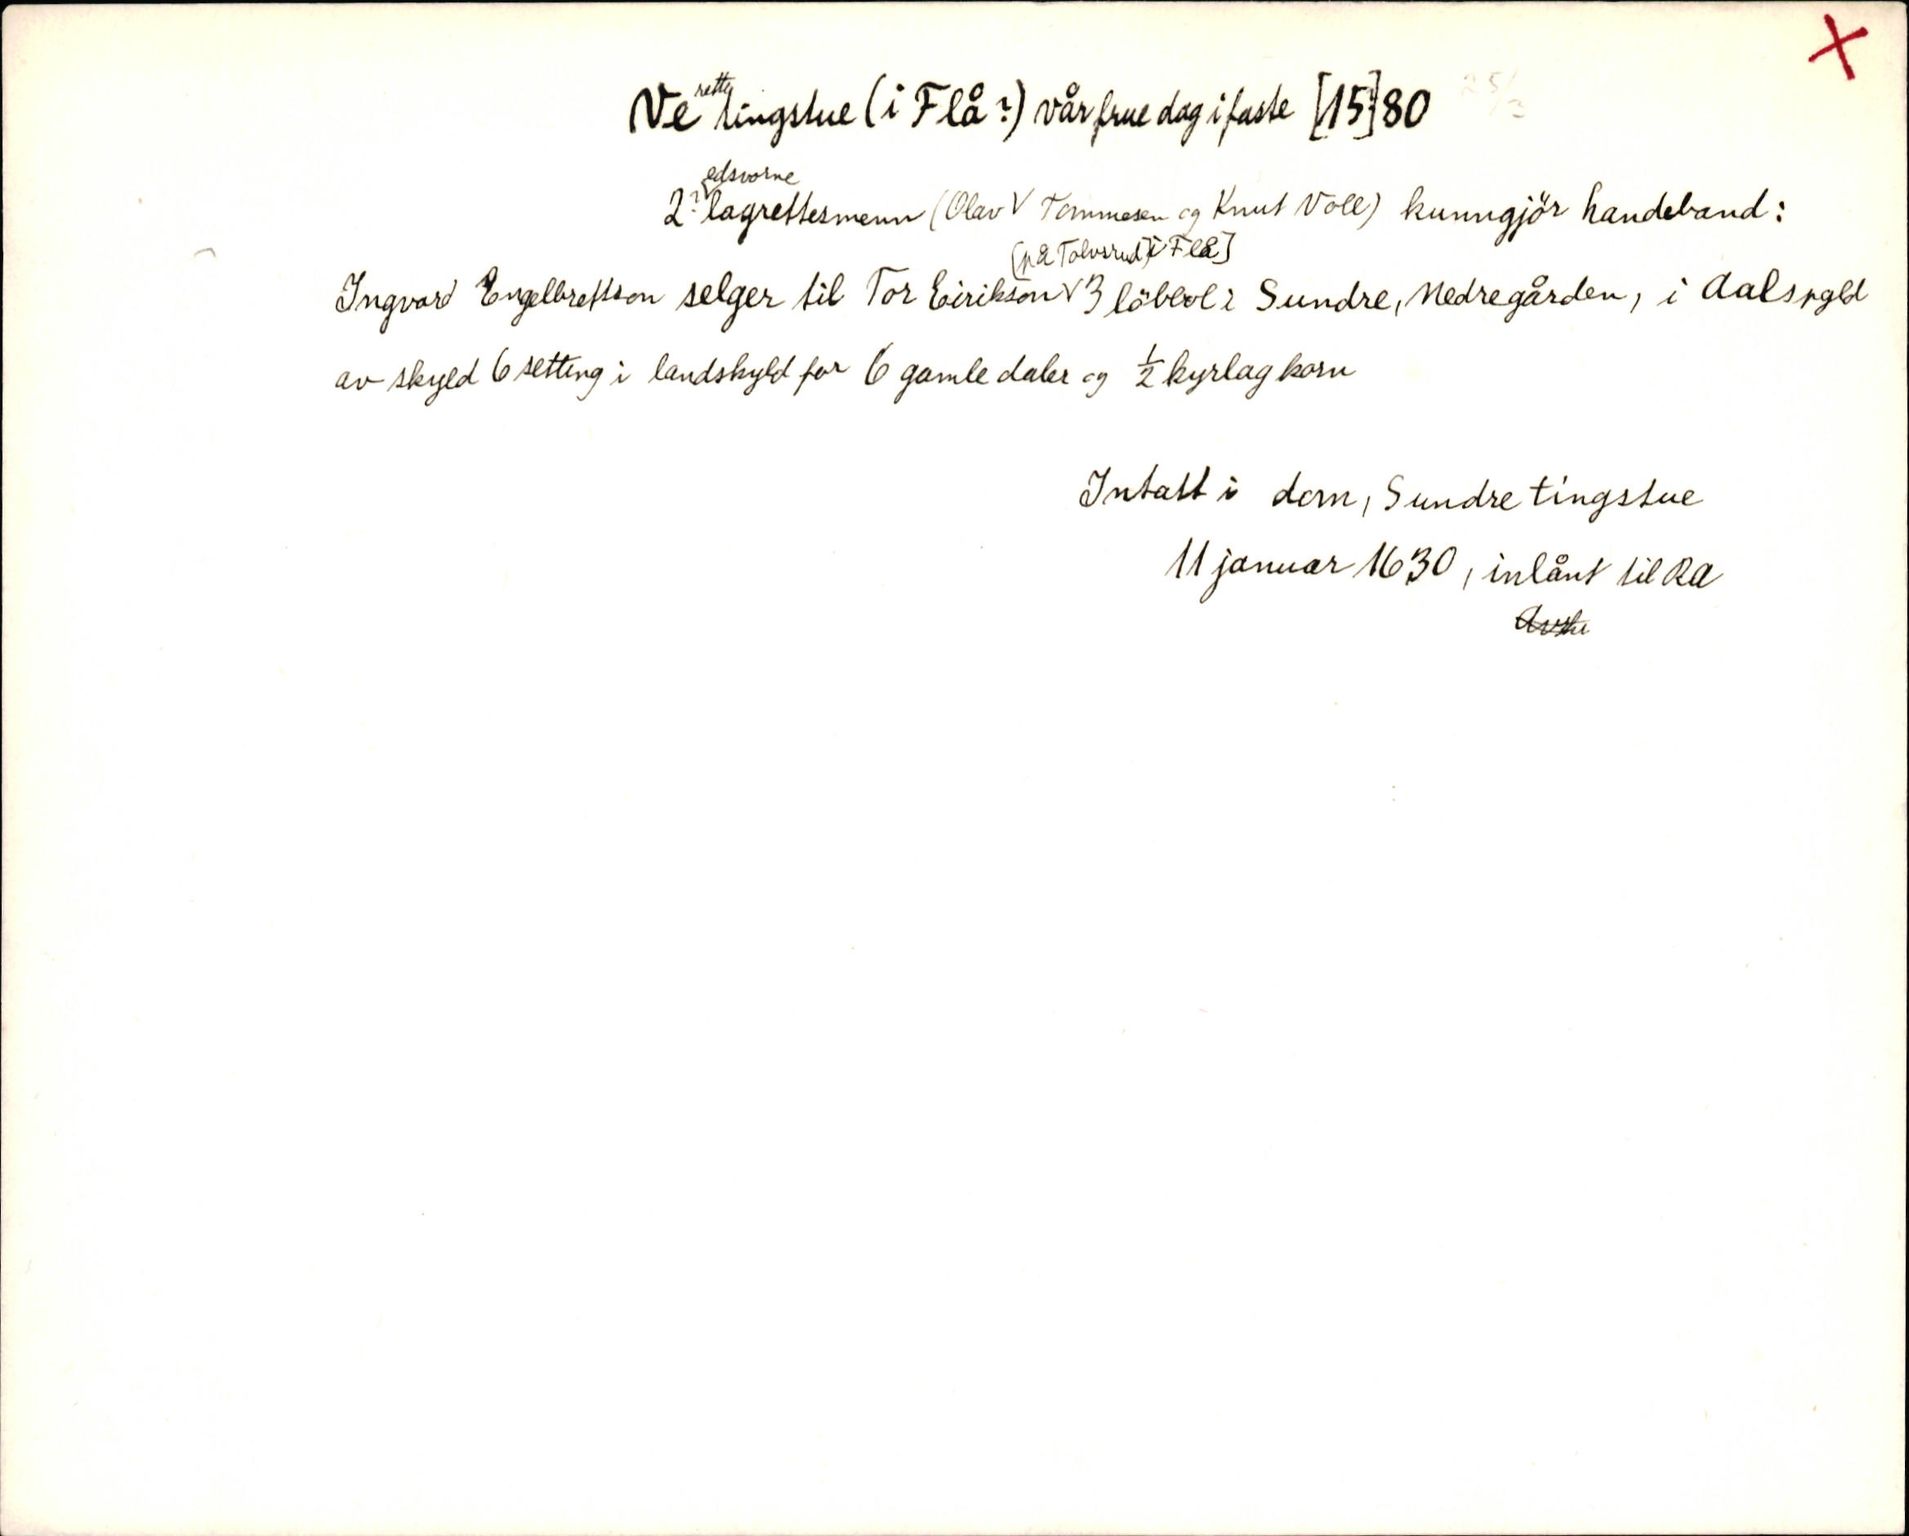 Ve rette tingstue (i Flå?) vår frue dag i faste [15]80 25/3
edsvorne
2? lagrettesmenn (Olav V Tommesen og Knut Voll) kunngjör handeband:
[på Tolvsrud i Flå]
Ingvard Engelbrettson selger til Tor Eirikson V 3 löbbol i Sundre, Nedregården, i Aal spgld
av skyld 6 setting i landskyld for 6 gamle daler og 1/2 kyrlag korn
Intatt i dom, Sundre tingstue
11 januar 1630, inlånt til RA